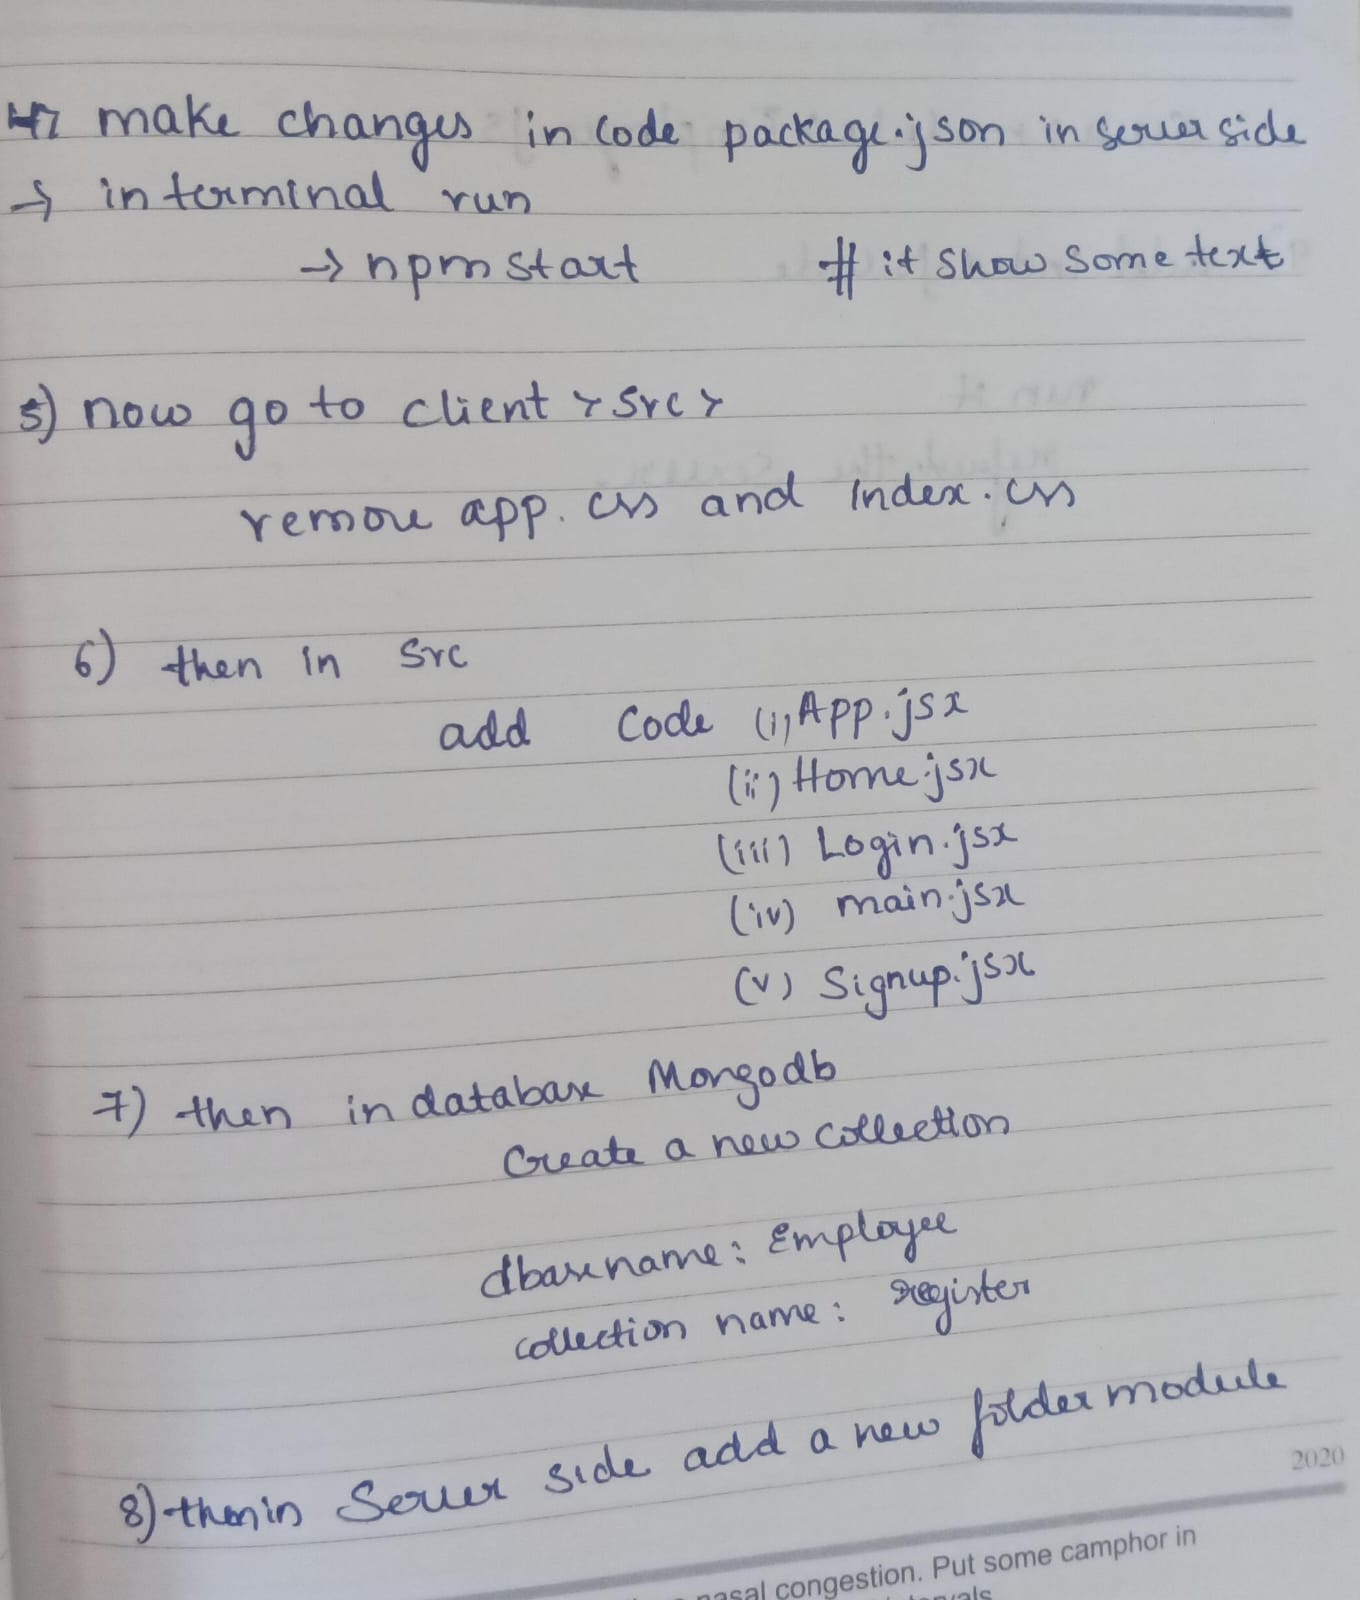 4) make changes in code package.json in server side
→ in terminal run
→ npm start # it show some text
5) now go to client > src >
remove app.css and index.css
6) then in src
add code (i) App.jsx
(ii) Home.jsx
(iii) Login.jsx
(iv) main.jsx
(v) Signup.jsx
7) then in database Mongodb
Create a new collection
dbase name: Employee
collection name: register
8) then in Server side add a new folder module
2020
nasal congestion. Put some camphor in